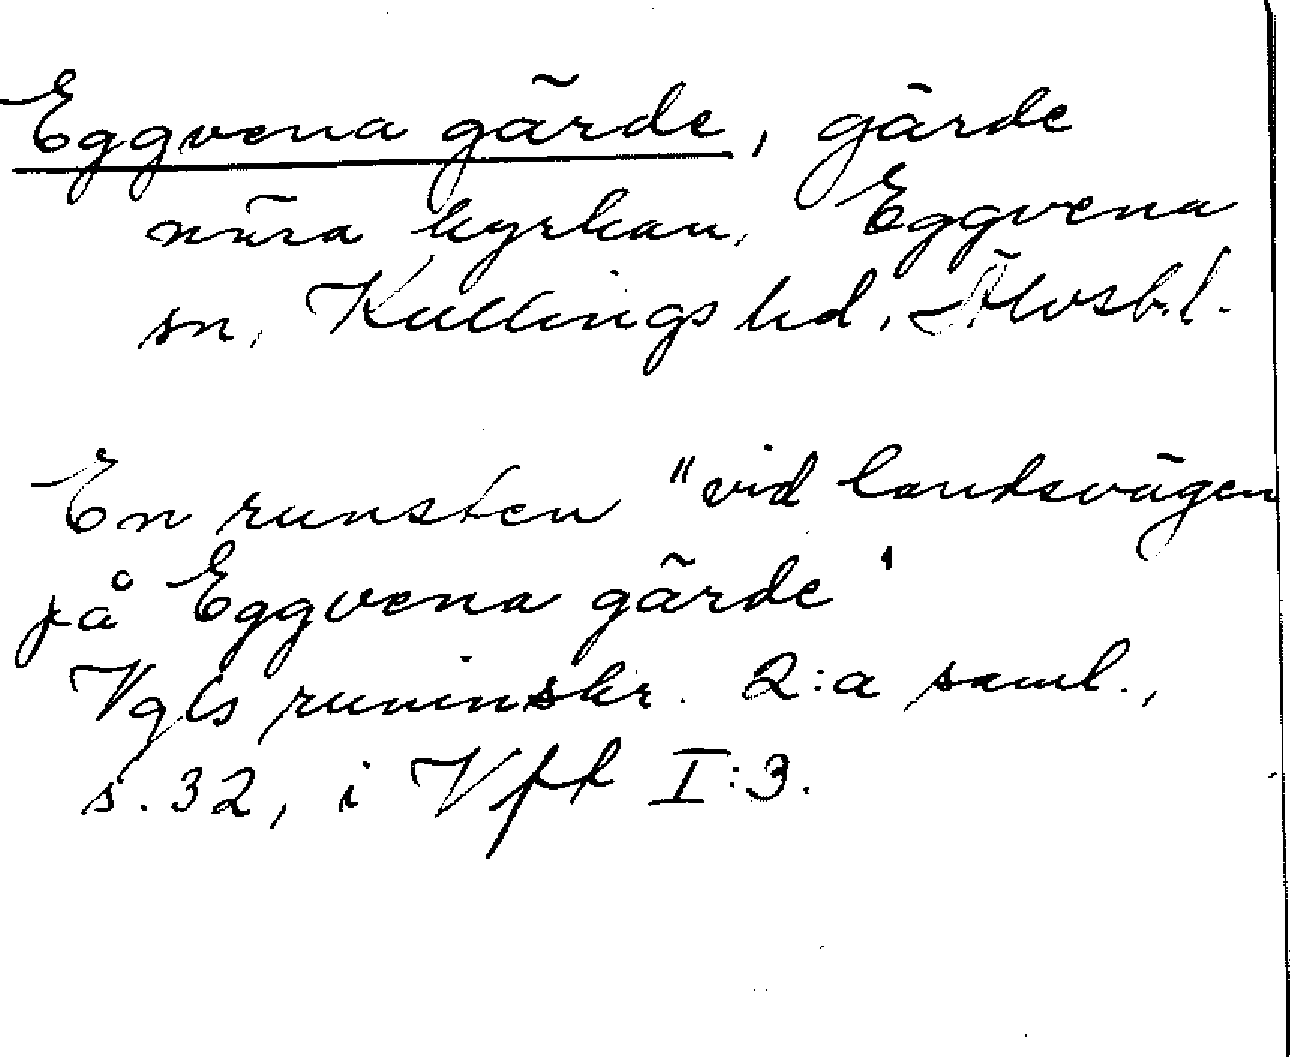 Eggvena gärde, gärde
nära kyrkan, Eggvena
sn, Kullings hd, Älvsb. l.
En runsten "vid landsvägen
på Eggvena gärde"
Vgls runinskr. 2:a saml.,
s. 32, i Vft I:3.